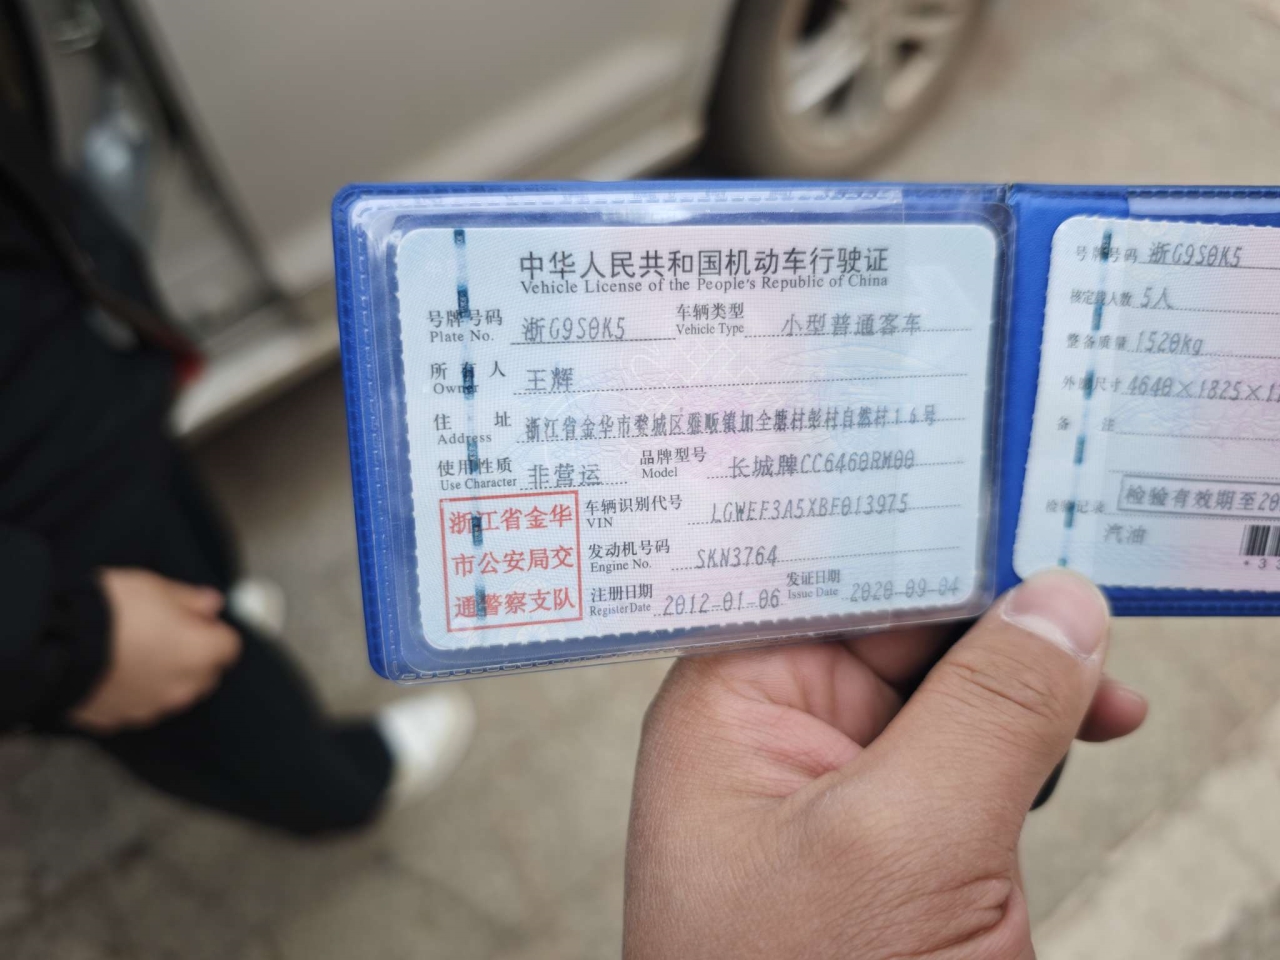 中华人民共和国机动车行驶证
Vehicle License of the People's Republic of China
号牌号码 浙G9S0K5 车辆类型 小型普通客车
Plate No. Vehicle Type
所有人 王辉
Owner
住址 浙江省金华市婺城区雅畈镇加全塘村彭村自然村16号
Address
使用性质 非营运 品牌型号 长城牌CC6460RM00
Use Character Model
车辆识别代号 LGWEF3A5XBF013975
VIN
发动机号码 SKN3764
Engine No.
注册日期 2012-01-06 发证日期 2020-09-04
Register Date Issue Date
浙江省金华
市公安局交
通警察支队
号牌号码 浙G9S0K5
核定载人数 5人
整备质量 1520kg
外廓尺寸 4640×1825×1
备注
检验记录 检验有效期至20
汽油